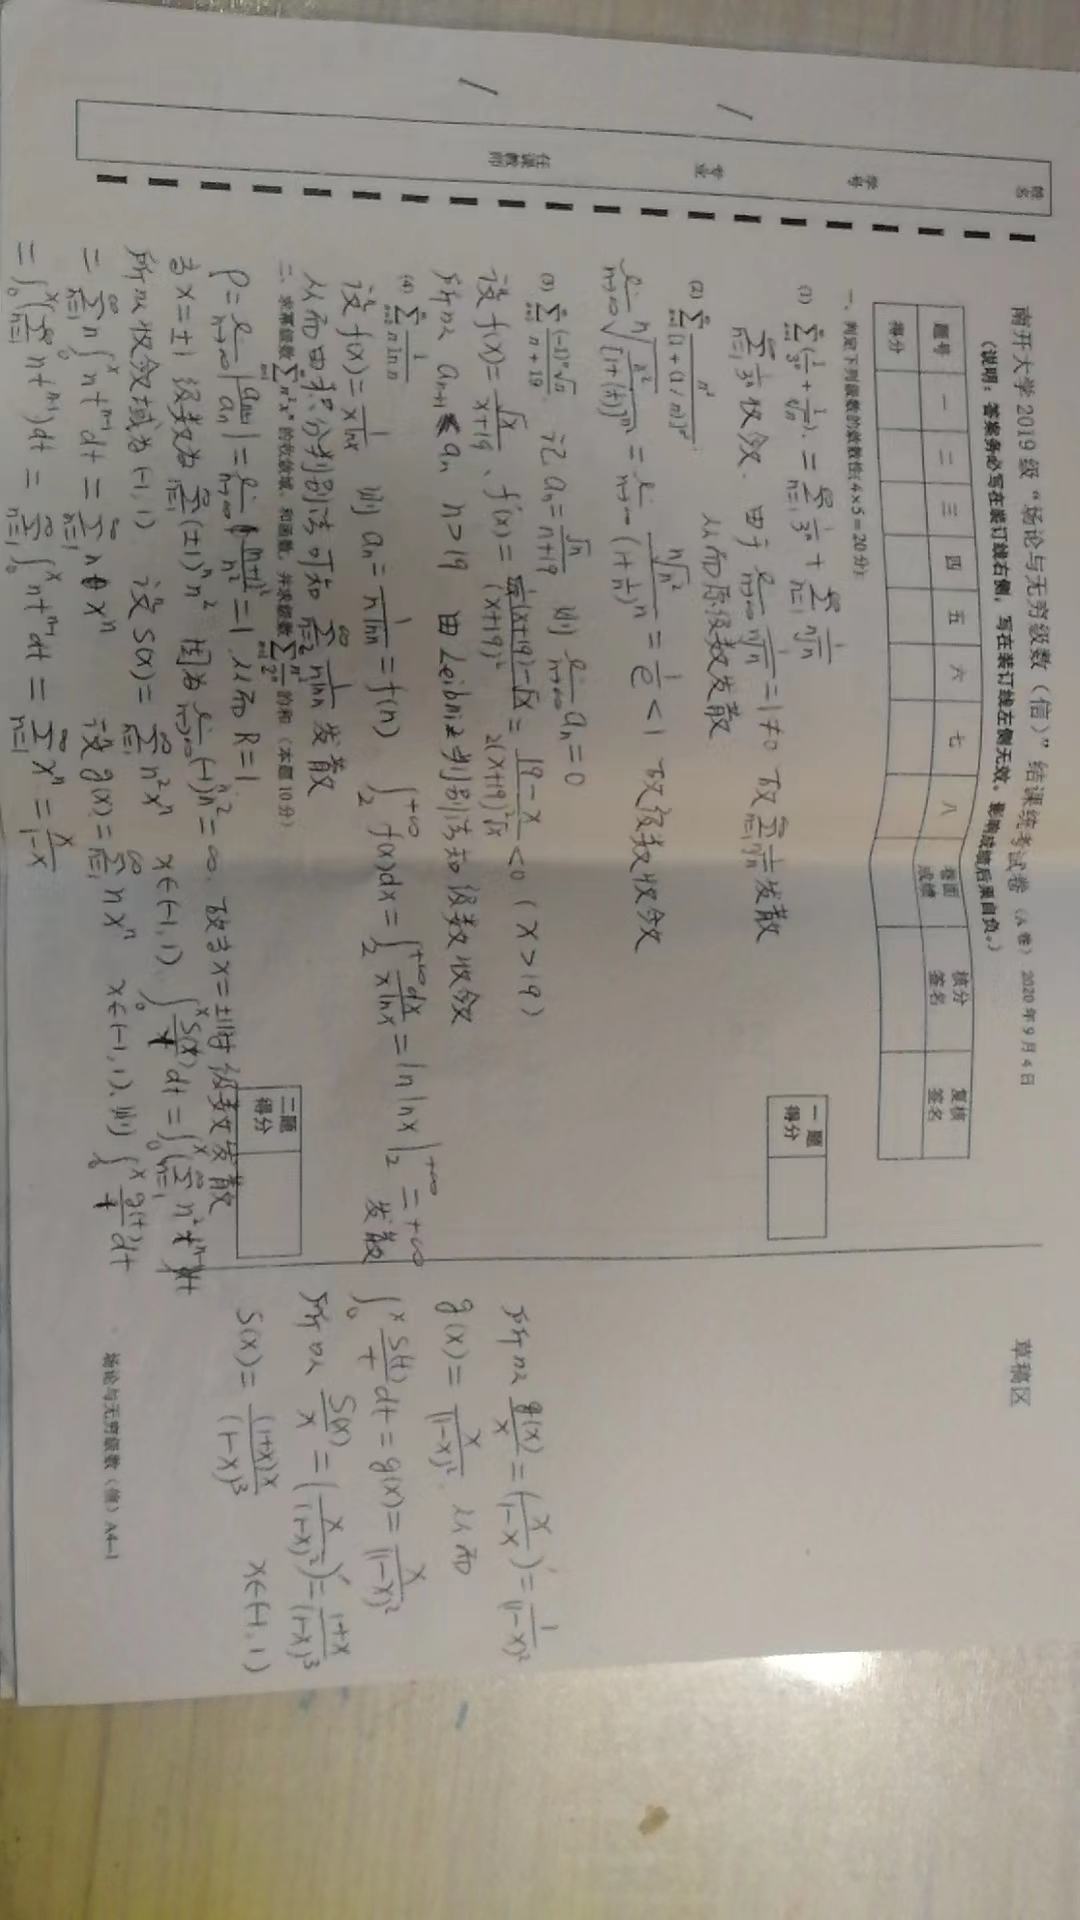 南开大学2019级“场论与无穷级数（信）”结课统考试卷（A卷） 2020年9月4日
（说明：答案务必写在装订线右侧，写在装订线左侧无效。影响成绩后果自负。）
草稿区
姓名
学号
专业
任课教师
题号 一 二 三 四 五 六 七 八 卷面成绩 核分签名 复核签名
得分
一、判定下列级数的敛散性(4×5=20分):
一题得分
(1) ∑_{n=1}^{∞}(1/3ⁿ + 1/ⁿ√n). = ∑_{n=1}^{∞} 1/3ⁿ + ∑_{n=1}^{∞} 1/ⁿ√n
∑_{n=1}^{∞} 1/3ⁿ 收敛. 由于 lim_{n→∞} 1/ⁿ√n = 1≠0 故 ∑_{n=1}^{∞} 1/ⁿ√n 发散
从而原级数发散
(2) ∑_{n=1}^{∞} n²/[1+(1/n)]^{n²}
lim_{n→∞} ⁿ√(n²/[1+(1/n)]^{n²}) = lim_{n→∞} ⁿ√n²/(1+1/n)ⁿ = 1/e < 1 故级数收敛
(3) ∑_{n=1}^{∞} (-1)ⁿ√n/(n+19) 记 aₙ = √n/(n+19) 则 lim_{n→∞} aₙ = 0
设 f(x) = √x/(x+19). f'(x) = (1/(2√x)(x+19)-√x)/(x+19)² = (19-x)/(2(x+19)²√x) < 0 (x>19)
所以 aₙ₊₁ < aₙ n>19 由Leibniz判别法知级数收敛
(4) ∑_{n=2}^{∞} 1/(n ln n)
设 f(x) = 1/(x lnx) 则 aₙ = 1/(n lnn) = f(n) ∫₂^{+∞} f(x)dx = ∫₂^{+∞} dx/(x lnx) = ln lnx |₂^{+∞} = +∞ 发散
从而由积分判别法可知 ∑_{n=2}^{∞} 1/(n lnn) 发散
二、求幂级数 ∑_{n=1}^{∞} n²xⁿ 的收敛域、和函数，并求级数 ∑_{n=1}^{∞} n²/2ⁿ 的和（本题10分）
二题得分
ρ = lim_{n→∞} |aₙ₊₁/aₙ| = lim_{n→∞} (n+1)²/n² = 1 从而 R=1.
当 x=±1 级数为 ∑_{n=1}^{∞} (±1)ⁿn² 因为 lim_{n→∞} (-1)ⁿn² = ∞. 故当x=±1时级数发散
所以收敛域为 (-1,1) 设 S(x) = ∑_{n=1}^{∞} n²xⁿ x∈(-1,1) ∫₀ˣ S(t)/t dt = ∫₀ˣ (∑_{n=1}^{∞} n²tⁿ⁻¹)dt
= ∑_{n=1}^{∞} n∫₀ˣ ntⁿ⁻¹dt = ∑_{n=1}^{∞} n xⁿ 设 g(x) = ∑_{n=1}^{∞} nxⁿ x∈(-1,1). 则 ∫₀ˣ g(t)/t dt
= ∫₀ˣ (∑_{n=1}^{∞} ntⁿ⁻¹)dt = ∑_{n=1}^{∞} ∫₀ˣ ntⁿ⁻¹dt = ∑_{n=1}^{∞} xⁿ = x/(1-x)
所以 g(x)/x = (x/(1-x))' = 1/(1-x)²
g(x) = x/(1-x)². 从而
∫₀ˣ S(t)/t dt = g(x) = x/(1-x)²
所以 S(x)/x = (x/(1-x)²)' = (1+x)/(1-x)³
S(x) = (1+x)x/(1-x)³ x∈(-1,1)
场论与无穷级数（信）A4—1